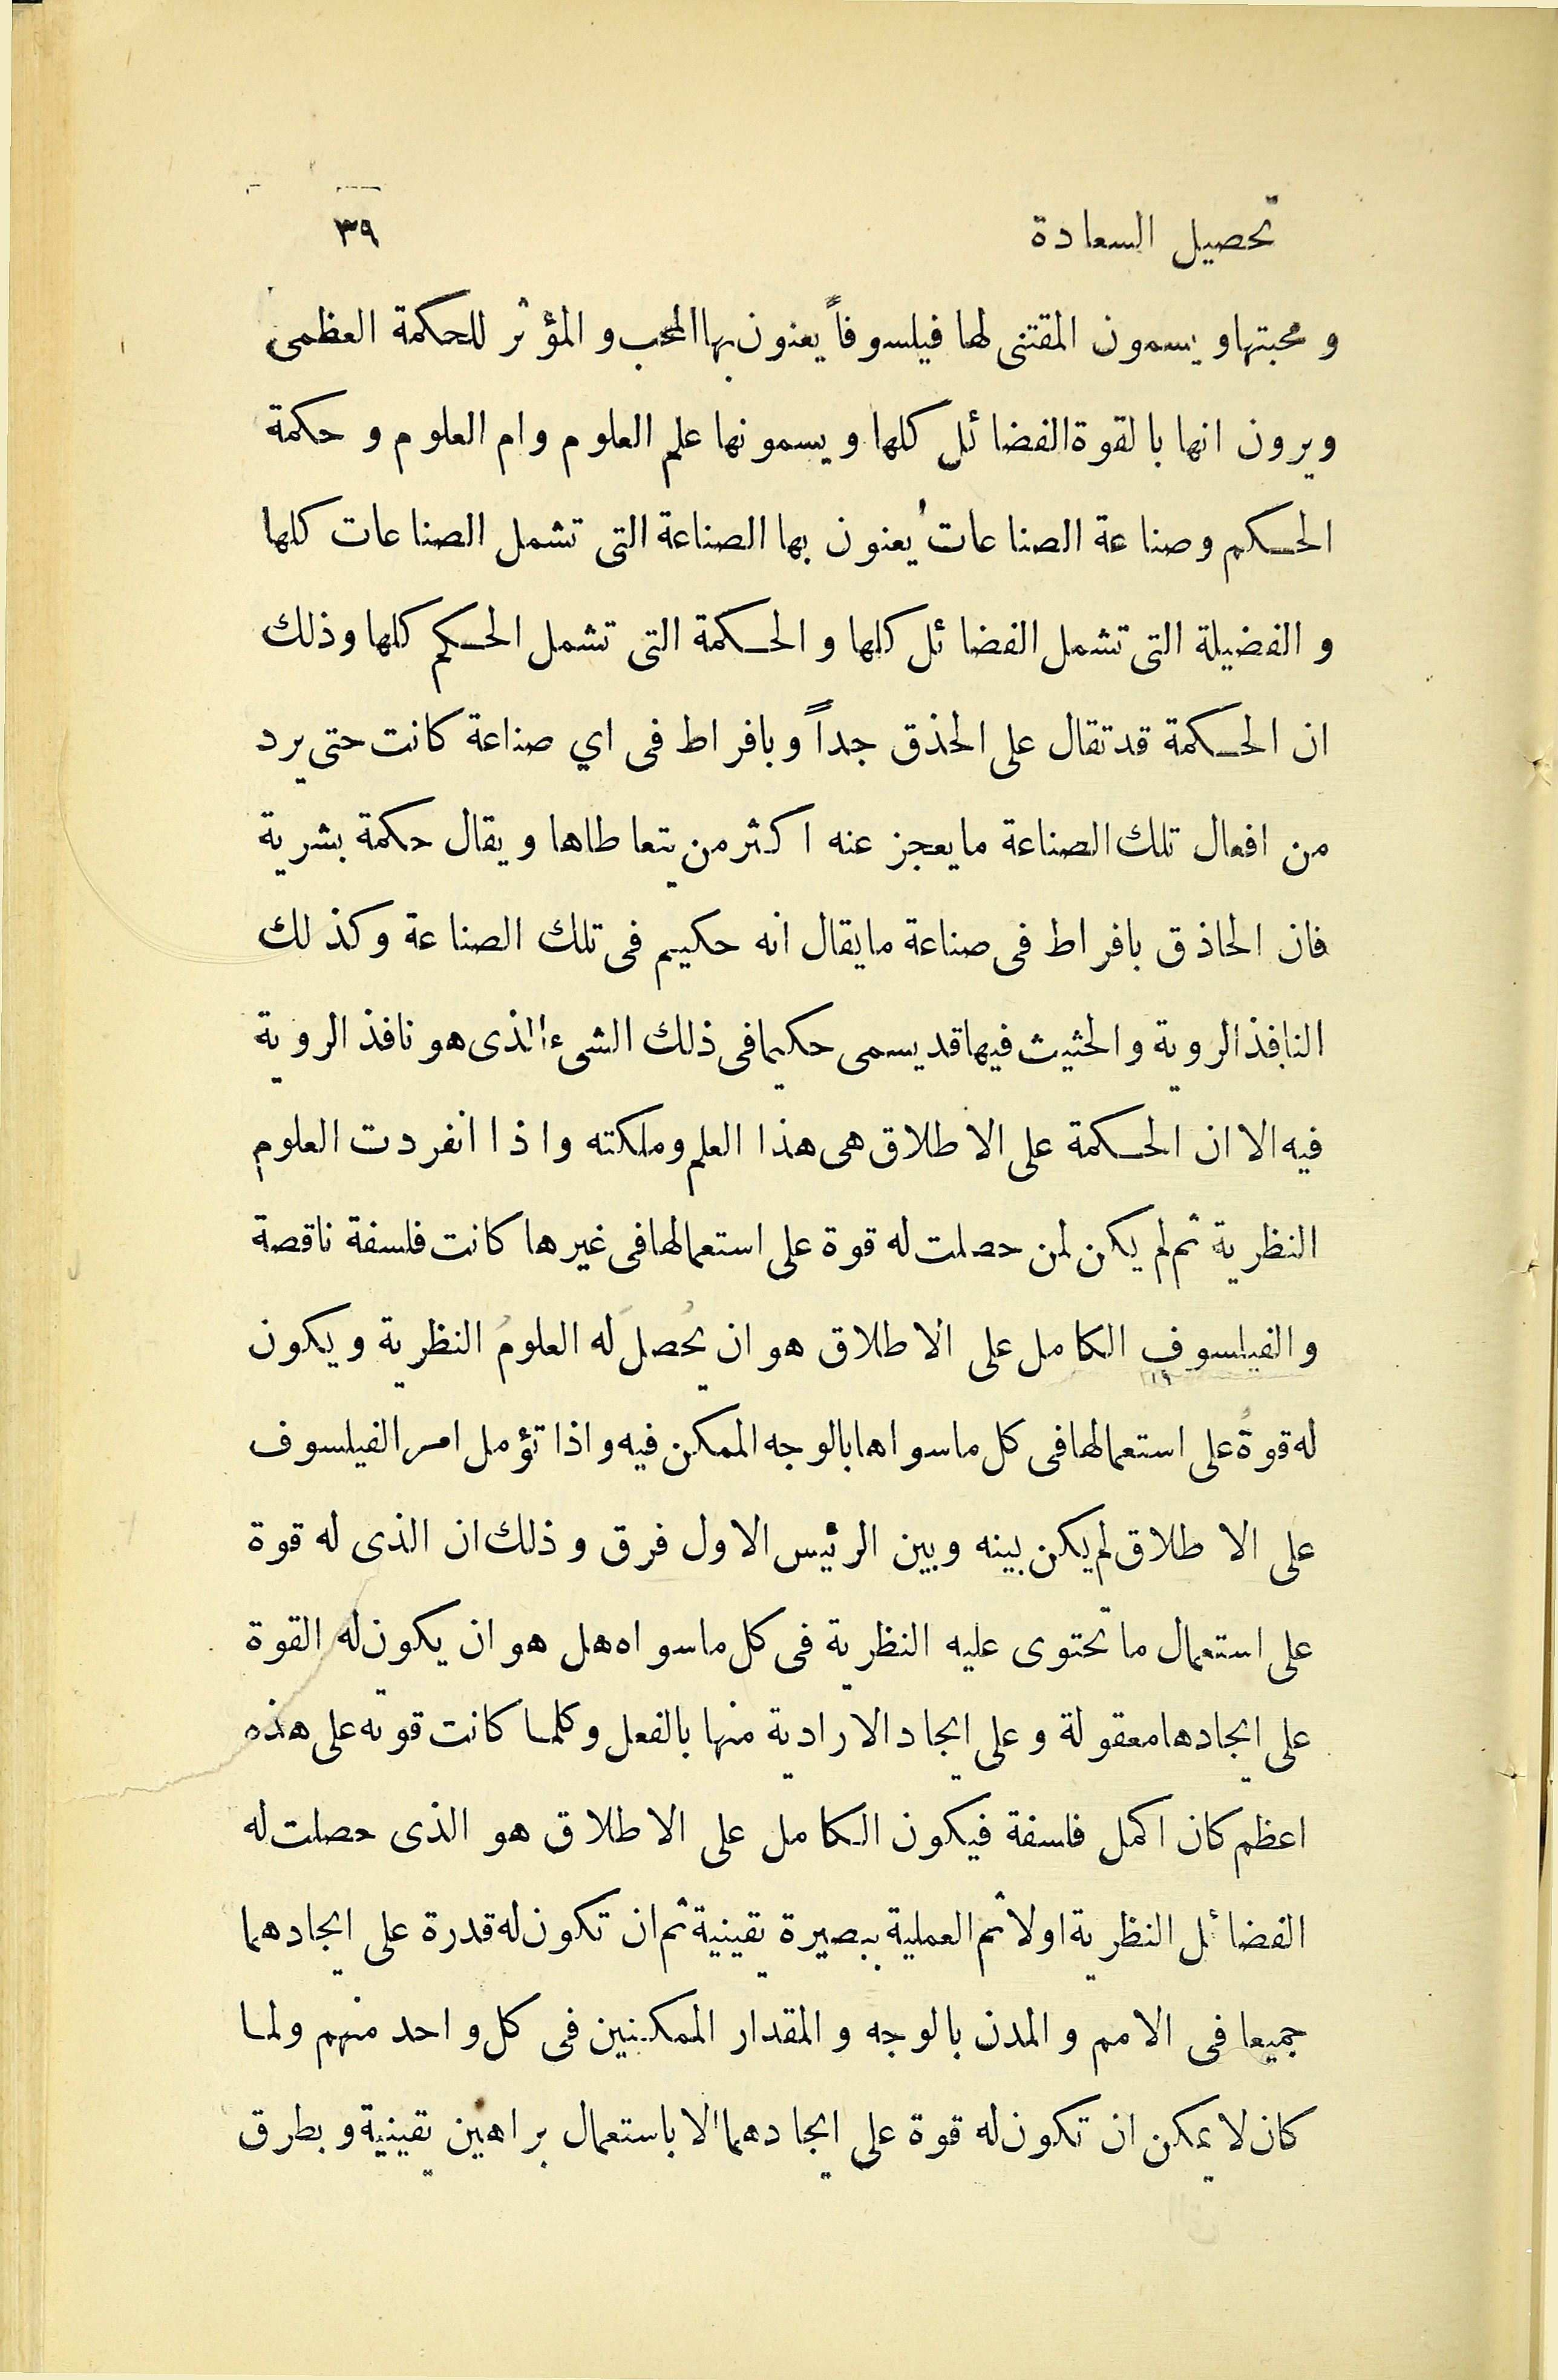 تحصيل السعادة ٣٩
و محبتها و يسمون المقتنى لها فيلسوفاً يعنون بها المحب و المؤثر للحكمة العظمى
ويرون انها بالقوة الفضائل كلها ويسمونها علم العلوم وام العلوم و حكمة
الحكم وصناعة الصناعات يعنون بها الصناعة التى تشمل الصناعات كلها
و الفضيلة التى تشمل الفضائل كلها و الحكمة التى تشمل الحكم كلها وذلك
ان الحكمة قد تقال على الحذق جداً وبافراط فى اي صناعة كانت حتى يرد
من افعال تلك الصناعة ما يعجز عنه اكثر من يتعاطاها ويقال حكمة بشرية
فان الحاذق بافراط فى صناعة ما يقال انه حكيم فى تلك الصناعة وكذلك
النافذ الروية والحثيث فيها قد يسمى حكيما فى ذلك الشىء الذى هو نافذ الروية
فيه الا ان الحكمة على الاطلاق هى هذا العلم وملكته واذا انفردت العلوم
النظرية ثم لم يكن لمن حصلت له قوة على استعمالها فى غيرها كانت فلسفة ناقصة
والفيلسوف الكامل على الاطلاق هو ان يُحصلَ له العلومُ النظرية ويكون
له قوةُ على استعمالها فى كل ما سواها بالوجه الممكن فيه واذا تؤمل امر الفيلسوف
على الاطلاق لم يكن بينه وبين الرئيس الاول فرق وذلك ان الذى له قوة
على استعمال ما تحتوى عليه النظرية فى كل ما سواه هل هو ان يكون له القوة
على ايجادها معقولة وعلى ايجاد الارادية منها بالفعل وكلما كانت قوته على هذه
اعظم كان اكمل فلسفة فيكون الكامل على الاطلاق هو الذى حصلت له
الفضائل النظرية اولا ثم العملية ببصيرة يقينية ثم ان تكون له قدرة على ايجادهما
جميعا فى الامم والمدن بالوجه والمقدار الممكنين فى كل واحد منهم ولما
كان لا يمكن ان تكون له قوة على ايجادهما الا باستعمال براهين يقينية وبطرق